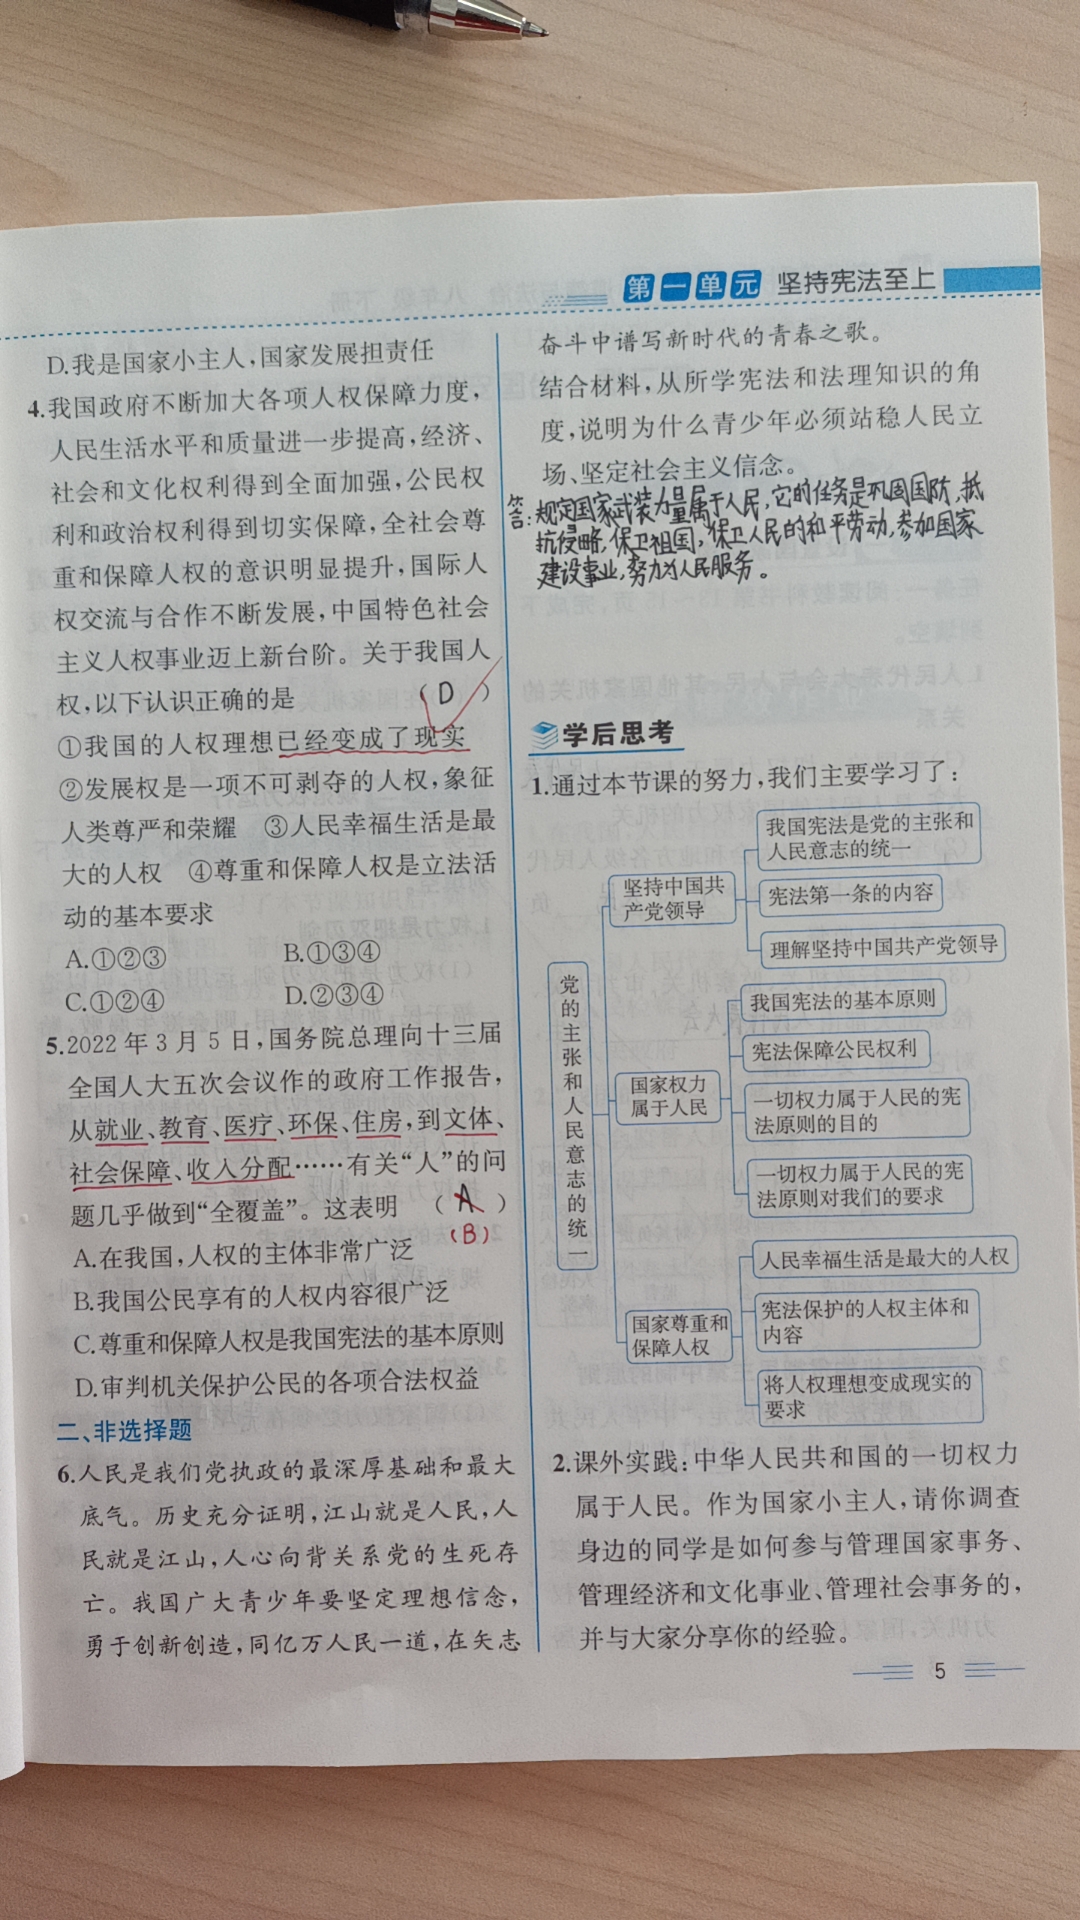 第一单元 坚持宪法至上
D.我是国家小主人,国家发展担责任
4.我国政府不断加大各项人权保障力度,
人民生活水平和质量进一步提高,经济、
社会和文化权利得到全面加强,公民权
利和政治权利得到切实保障,全社会尊
重和保障人权的意识明显提升,国际人
权交流与合作不断发展,中国特色社会
主义人权事业迈上新台阶。关于我国人
权,以下认识正确的是 (D)
①我国的人权理想已经变成了现实
②发展权是一项不可剥夺的人权,象征
人类尊严和荣耀 ③人民幸福生活是最
大的人权 ④尊重和保障人权是立法活
动的基本要求
A.①②③ B.①③④
C.①②④ D.②③④
5.2022年3月5日,国务院总理向十三届
全国人大五次会议作的政府工作报告,
从就业、教育、医疗、环保、住房,到文体、
社会保障、收入分配……有关“人”的问
题几乎做到“全覆盖”。这表明 (A)
(B)
A.在我国,人权的主体非常广泛
B.我国公民享有的人权内容很广泛
C.尊重和保障人权是我国宪法的基本原则
D.审判机关保护公民的各项合法权益
二、非选择题
6.人民是我们党执政的最深厚基础和最大
底气。历史充分证明,江山就是人民,人
民就是江山,人心向背关系党的生死存
亡。我国广大青少年要坚定理想信念,
勇于创新创造,同亿万人民一道,在矢志
奋斗中谱写新时代的青春之歌。
结合材料,从所学宪法和法理知识的角
度,说明为什么青少年必须站稳人民立
场、坚定社会主义信念。
答:规定国家武装力量属于人民,它的任务是巩固国防,抵
抗侵略,保卫祖国,保卫人民的和平劳动,参加国家
建设事业,努力为人民服务。
学后思考
1.通过本节课的努力,我们主要学习了:
党的主张和人民意志的统一
坚持中国共
产党领导
我国宪法是党的主张和
人民意志的统一
宪法第一条的内容
理解坚持中国共产党领导
国家权力
属于人民
我国宪法的基本原则
宪法保障公民权利
一切权力属于人民的宪
法原则的目的
一切权力属于人民的宪
法原则对我们的要求
国家尊重和
保障人权
人民幸福生活是最大的人权
宪法保护的人权主体和
内容
将人权理想变成现实的
要求
2.课外实践:中华人民共和国的一切权力
属于人民。作为国家小主人,请你调查
身边的同学是如何参与管理国家事务、
管理经济和文化事业、管理社会事务的,
并与大家分享你的经验。
5